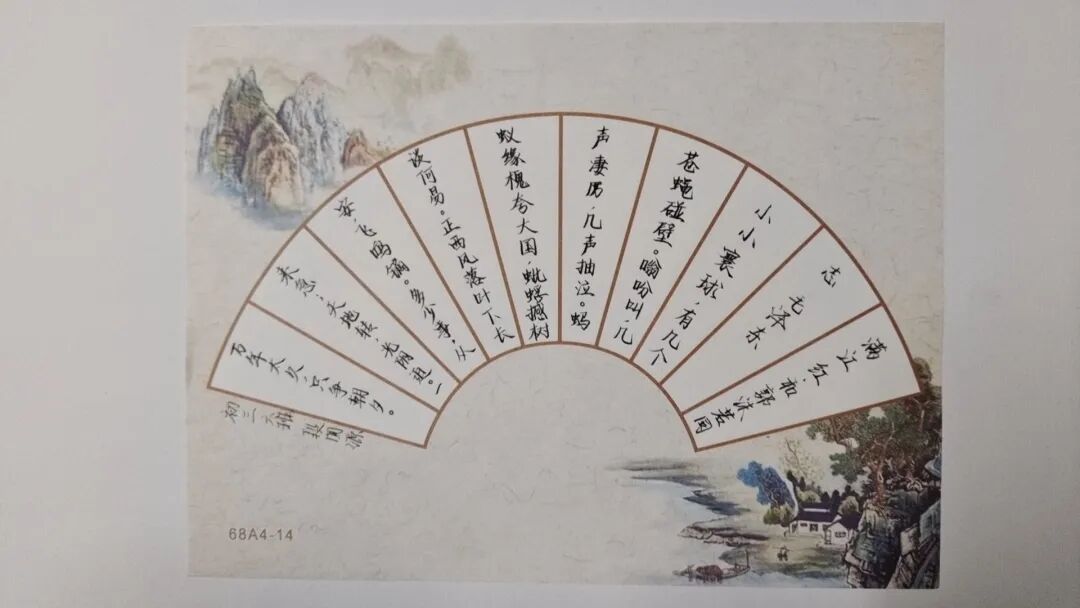 满江红·和郭沫若同
志 毛泽东
小小襄球,有几个
苍蝇碰壁。嗡吩叫,几
声凄厉,几声抽泣。蚂
蚁缘槐夸大国,蚍蜉撼树
谈何易。正西风落叶下长
安,飞鸣镝。多少事,从
来急;天地转,光阴迫。一
万年太久,只争朝夕。
初三六班
68A4-14